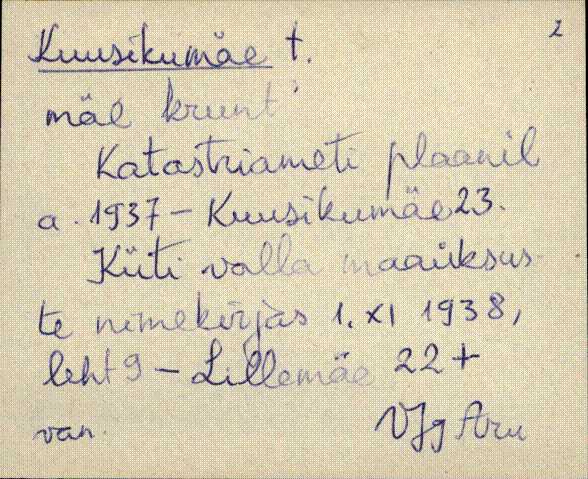 2
Kuusikumäe t.
mäe krunt
Katastriameti plaanil
a. 1937 - Kuusikumäe 23.
Küti valla maaüksus-
te nimekirjas 1. XI 1938,
leht 9 - Lillemäe 22 +
van. VJg Aru